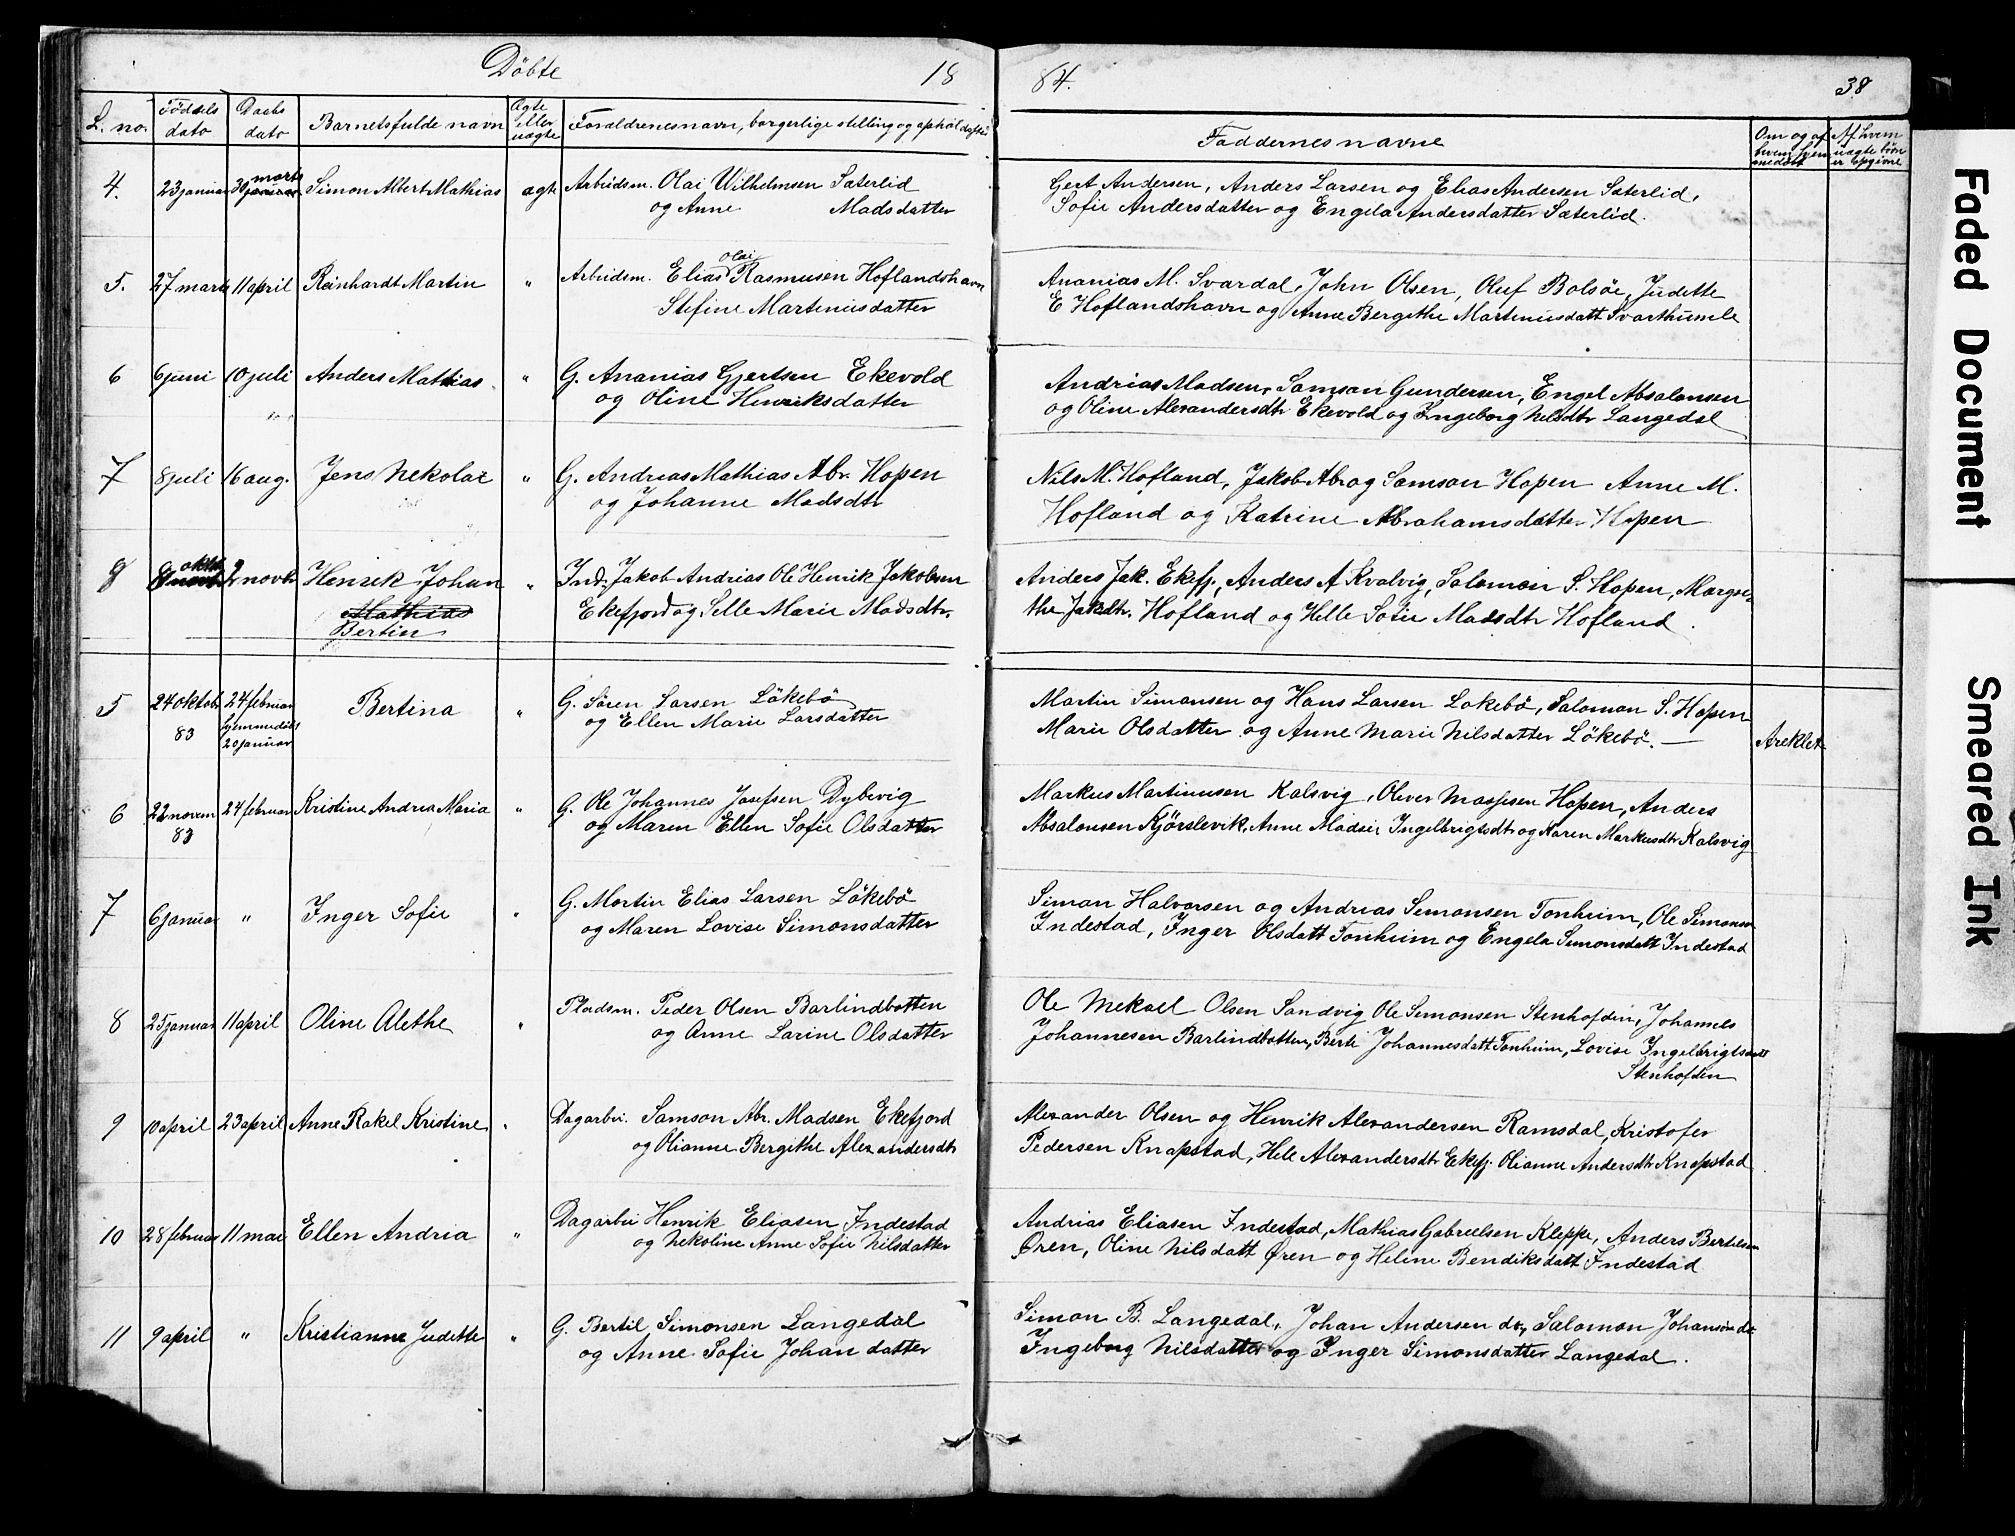 Döbte 18 84. 38
L. no. Födsels dato Daabs dato Barnets fulde navn Ægte eller uægte Forældrenes navn, borgerlige stilling og opholdssted Faddernes navne Om og af hvem hjemmedöbt Af hvem uægte börn er opgivne
4. 23 januar 30 januar marts Simon Albert Mathias ægte Arbeidsm. Olai Wilhelmsen Sæterlid Gert Andersen, Anders Larsen og Elias Andersen Sæterlid,
og Anne Madsdatter Sofie Andersdatter og Engela Andersdatter Sæterlid.
5. 27 marts 11 april Reinhardt Martin " Arbeidsm. Elias Olai Rasmusen Hoflandshavn Ananias M. Svardal, John Olsen, Oluf Bolsöe, Judette
Stefine Martinusdatter E Hoflandshavn og Anne Bergithe Martinusdatt Svarthumle
6 6 juni 10 juli Anders Mathias " G. Ananias Gjertsen Ekevold Andrias Madsen, Samson Gundersen, Engel Absalonsen
og Oline Henriksdatter og Oline Alexandersdtr Ekevold og Ingeborg Nilsdtr Langedal
7 8 juli 16 aug. Jens Nekolai " G. Andreas Mathias Abr. Hopen Nils M. Hofland, Jakob Abr og Samson Hopen Anne M.
og Johanne Madsdtr Hofland og Katrine Abrahamsdatter Hopen
8 8 oktbr 2 novbr Henrik Johan " Ind. Jakob Andrias Ole Henrik Jakobsen Anders Jak. Ekefj, Anders A Kvalvig, Salomon S. Hopen, Margre-
Mathias Ekefjord og Sille Marie Madsdtr. the Jakdtr. Hofland og Helle Sofie Madsdtr Hofland.
Bertin
5 24 oktob 83 24 februar hjemmedöbt 20 januar Bertina " G. Sören Larsen Lökebö Martin Simonsen og Hans Larsen Lökebö, Salomon S. Hopen
og Ellen Marie Larsdatter Marie Olsdatter og Anne Marie Nilsdatter Lökebö. —
6 22 novem 83 24 februar Kristine Andrea Maria " G. Ole Johannes Josefsen Dybevig Markus Martinusen Kalsvig, Oliver Hopen, Anders
og Maren Ellen Sofie Olsdatter Absalonsen Kjörslevik, Anne Madsie Ingelbrigtsdtr og Karen Markusdtr Kalsvig
7 6 januar " Inger Sofie " G. Martin Elias Larsen Lökebö Simon Halvorsen og Andrias Simonsen Tonheim, Ole Simonsen
og Maren Lovise Simonsdatter Indestad, Inger Olsdatt Tonheim og Engela Simonsdatt Indestad
8 25 januar 11 april Oline Alethe " Pladsm. Peder Olsen Barlindbotten Ole Mekael Olsen Sandvig Ole Simonsen Stenhofden, Johannes
og Anne Larine Olsdatter Johannesen Barlindbotten, Berte Johannesdatt Tonheim, Lovise Ingelbrigtsdatt
Stenhofden
9 10 april 23 april Anne Rakel Kristine " Dagarbei. Samson Abr. Madsen Ekefjord Alexander Olsen og Henrik Alexandersen Ramsdal, Kristofer
og Olianne Bergithe Alexandersdtr Pedersen Knapstad, Hele Alexandersdtr Ekefj. Olianne Andersdtr Knapstad
10 28 februar 11 mai Ellen Andria " Dagarbei Henrik Eliasen Indestad Andrias Eliasen Indestad, Mathias Gabrielsen Kleppe, Anders Bertilsen
og Nekoline Anne Sofie Nilsdatter Øren, Oline Nilsdatt Øren og Heline Bendiksdatt Indestad
11 9 april " Kristianne Judette " G. Bertil Simonsen Langedal Simon B. Langedal, Johan Andersen do, Salomon Johansen do
og Anne Sofie Johandatter Ingeborg Nilsdatter og Inger Simonsdatter Langedal.
Faded Document
Smeared Ink